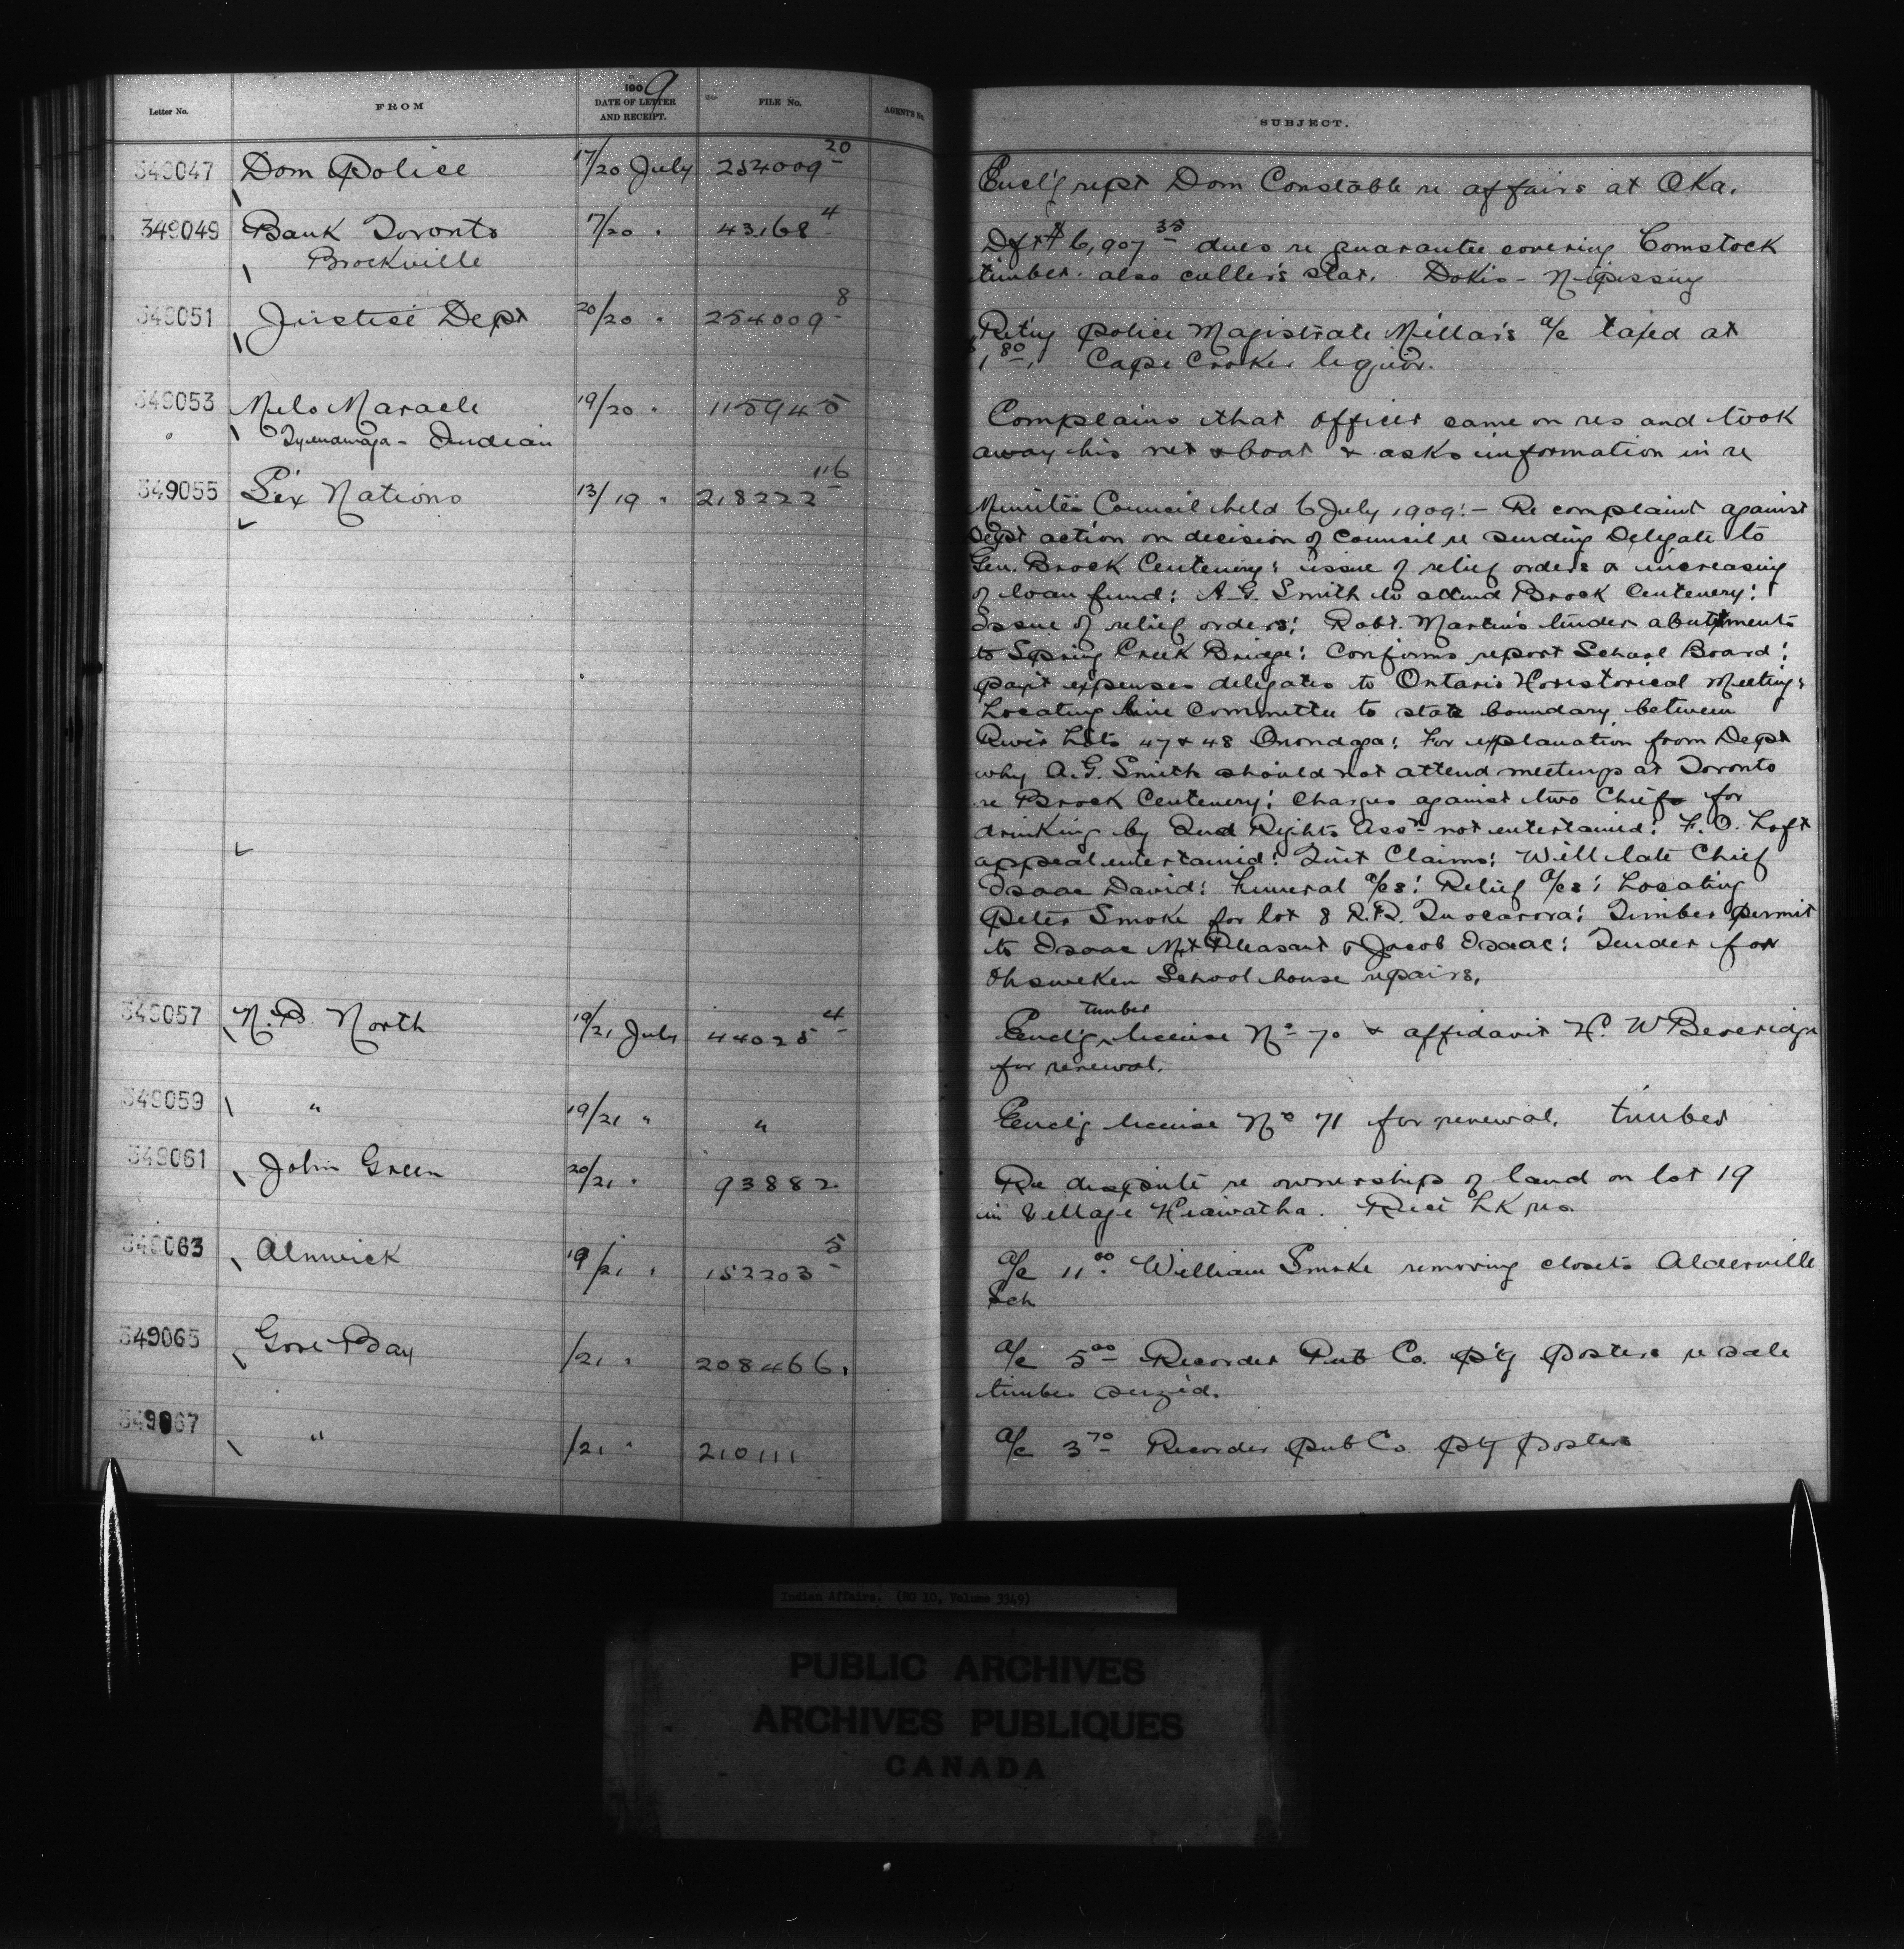 Letter No. FROM 1909 DATE OF LETTER AND RECEIPT. FILE No. AGENT'S No. SUBJECT.
349047 Dom Police 17/20 July 254009 20 Encl'g rept Dom Constable re affairs at Oka.
349049 Bank Toronto 17/20 " 43168 4 Dft $6,907 35 dues re guarantee covering Comstock
Brockville timber. also culler's stat. Dokis - Nipissing
349051 Justice Dept 20/20 " 254009 8 Retng Police Magistrate Millar's a/c taxed at
$1 80. Cape Croker liquor.
349053 Maracle 19/20 " 115945 Complains that officer came on res and took
Tyendinaga - Indian away his net & boat & asks information in re
349055 Six Nations 13/19 " 218222 116
Minutes Council held 6 July 1909:- Re complaint against
Dept action on decision of Council re sending Delegate to
Gen. Brock Centenery: issue of relief orders & increasing
of loan fund: A.G. Smith to attend Brock Centenery:
Issue of relief orders: Robt. Martin's tinder abutments
to Spring Creek Bridge: Confirms report School Board:
pay't expenses delegates to Ontario Horistorical Meeting:
Locating line Committee to state boundary between
River Lots 47 & 48 Onondaga: For explanation from Dept
why A.G. Smith should not attend meetings at Toronto
re Brock Centenery: Charges against two Chiefs for
drinking by Ind Rights Assn not entertained: F. O. Loft
appeal entertained: Quit Claims: Will late Chief
Isaac David: Funeral a/cs: Relief a/cs: Locating
Peter Smoke for lot 8 R.R. Tuscarora: Timber permit
to Isaac Mt Pleasant & Jacob Isaac: Tender for
Ohsweken School house repairs.
349057 N.B. North 19/21 July 44025 4 Encl'g timber license No 70 & affidavit H. W Beveridge
for renewal.
349059 " 19/21 " " Encl'g license No 71 for renewal. timber
349061 John Green 20/21 " 93882 Re dispute re ownerships of land on lot 19
in Village Hiawatha. Rice Lk res.
349063 Alnwick 19/21 " 152203 5 a/c 11 00 William Smoke removing closets Alderville
Sch
349065 Gore Bay /21 " 208466. a/c 5 00 Recorder Pub Co. p't'g posters re sale
timber seized.
349067 " /21 " 210111 a/c 3 70 Recorder Pub Co. p't'g posters
Indian Affairs. (RG 10, Volume 3349)
PUBLIC ARCHIVES
ARCHIVES PUBLIQUES
CANADA